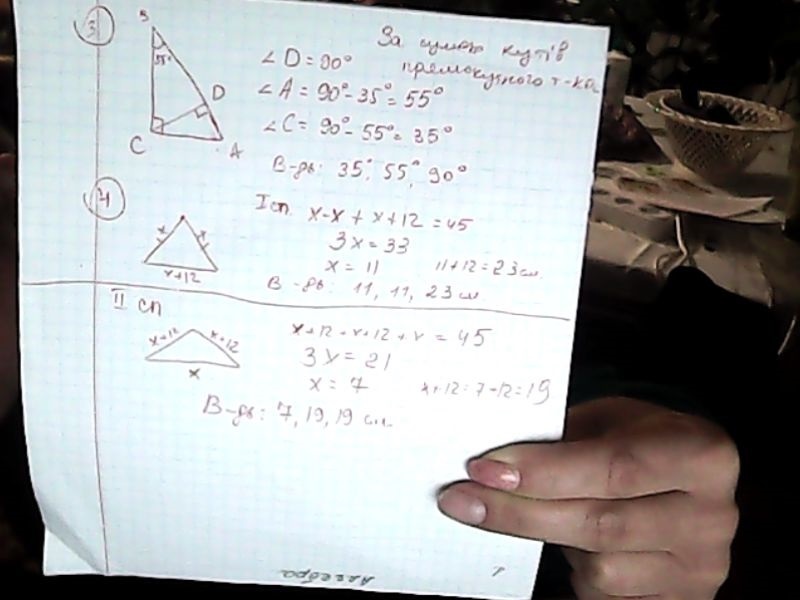 3
B
35°
D
C
A
∠D = 90°
∠A = 90° - 35° = 55°
∠C = 90° - 55° = 35°
В-дь: 35°, 55°, 90°
За сумою кутів
прямокутного
4
x x
x+12
I сп. x-x + x+12 = 45
3x = 33
x = 11 11+12 = 23 см.
В-дь: 11, 11, 23 см.
II сп
x+12 x+12
x
x+12 + x+12 + x = 45
3x = 21
x = 7 x+12 = 7+12 = 19
В-дь: 7, 19, 19 см.
Алгебра